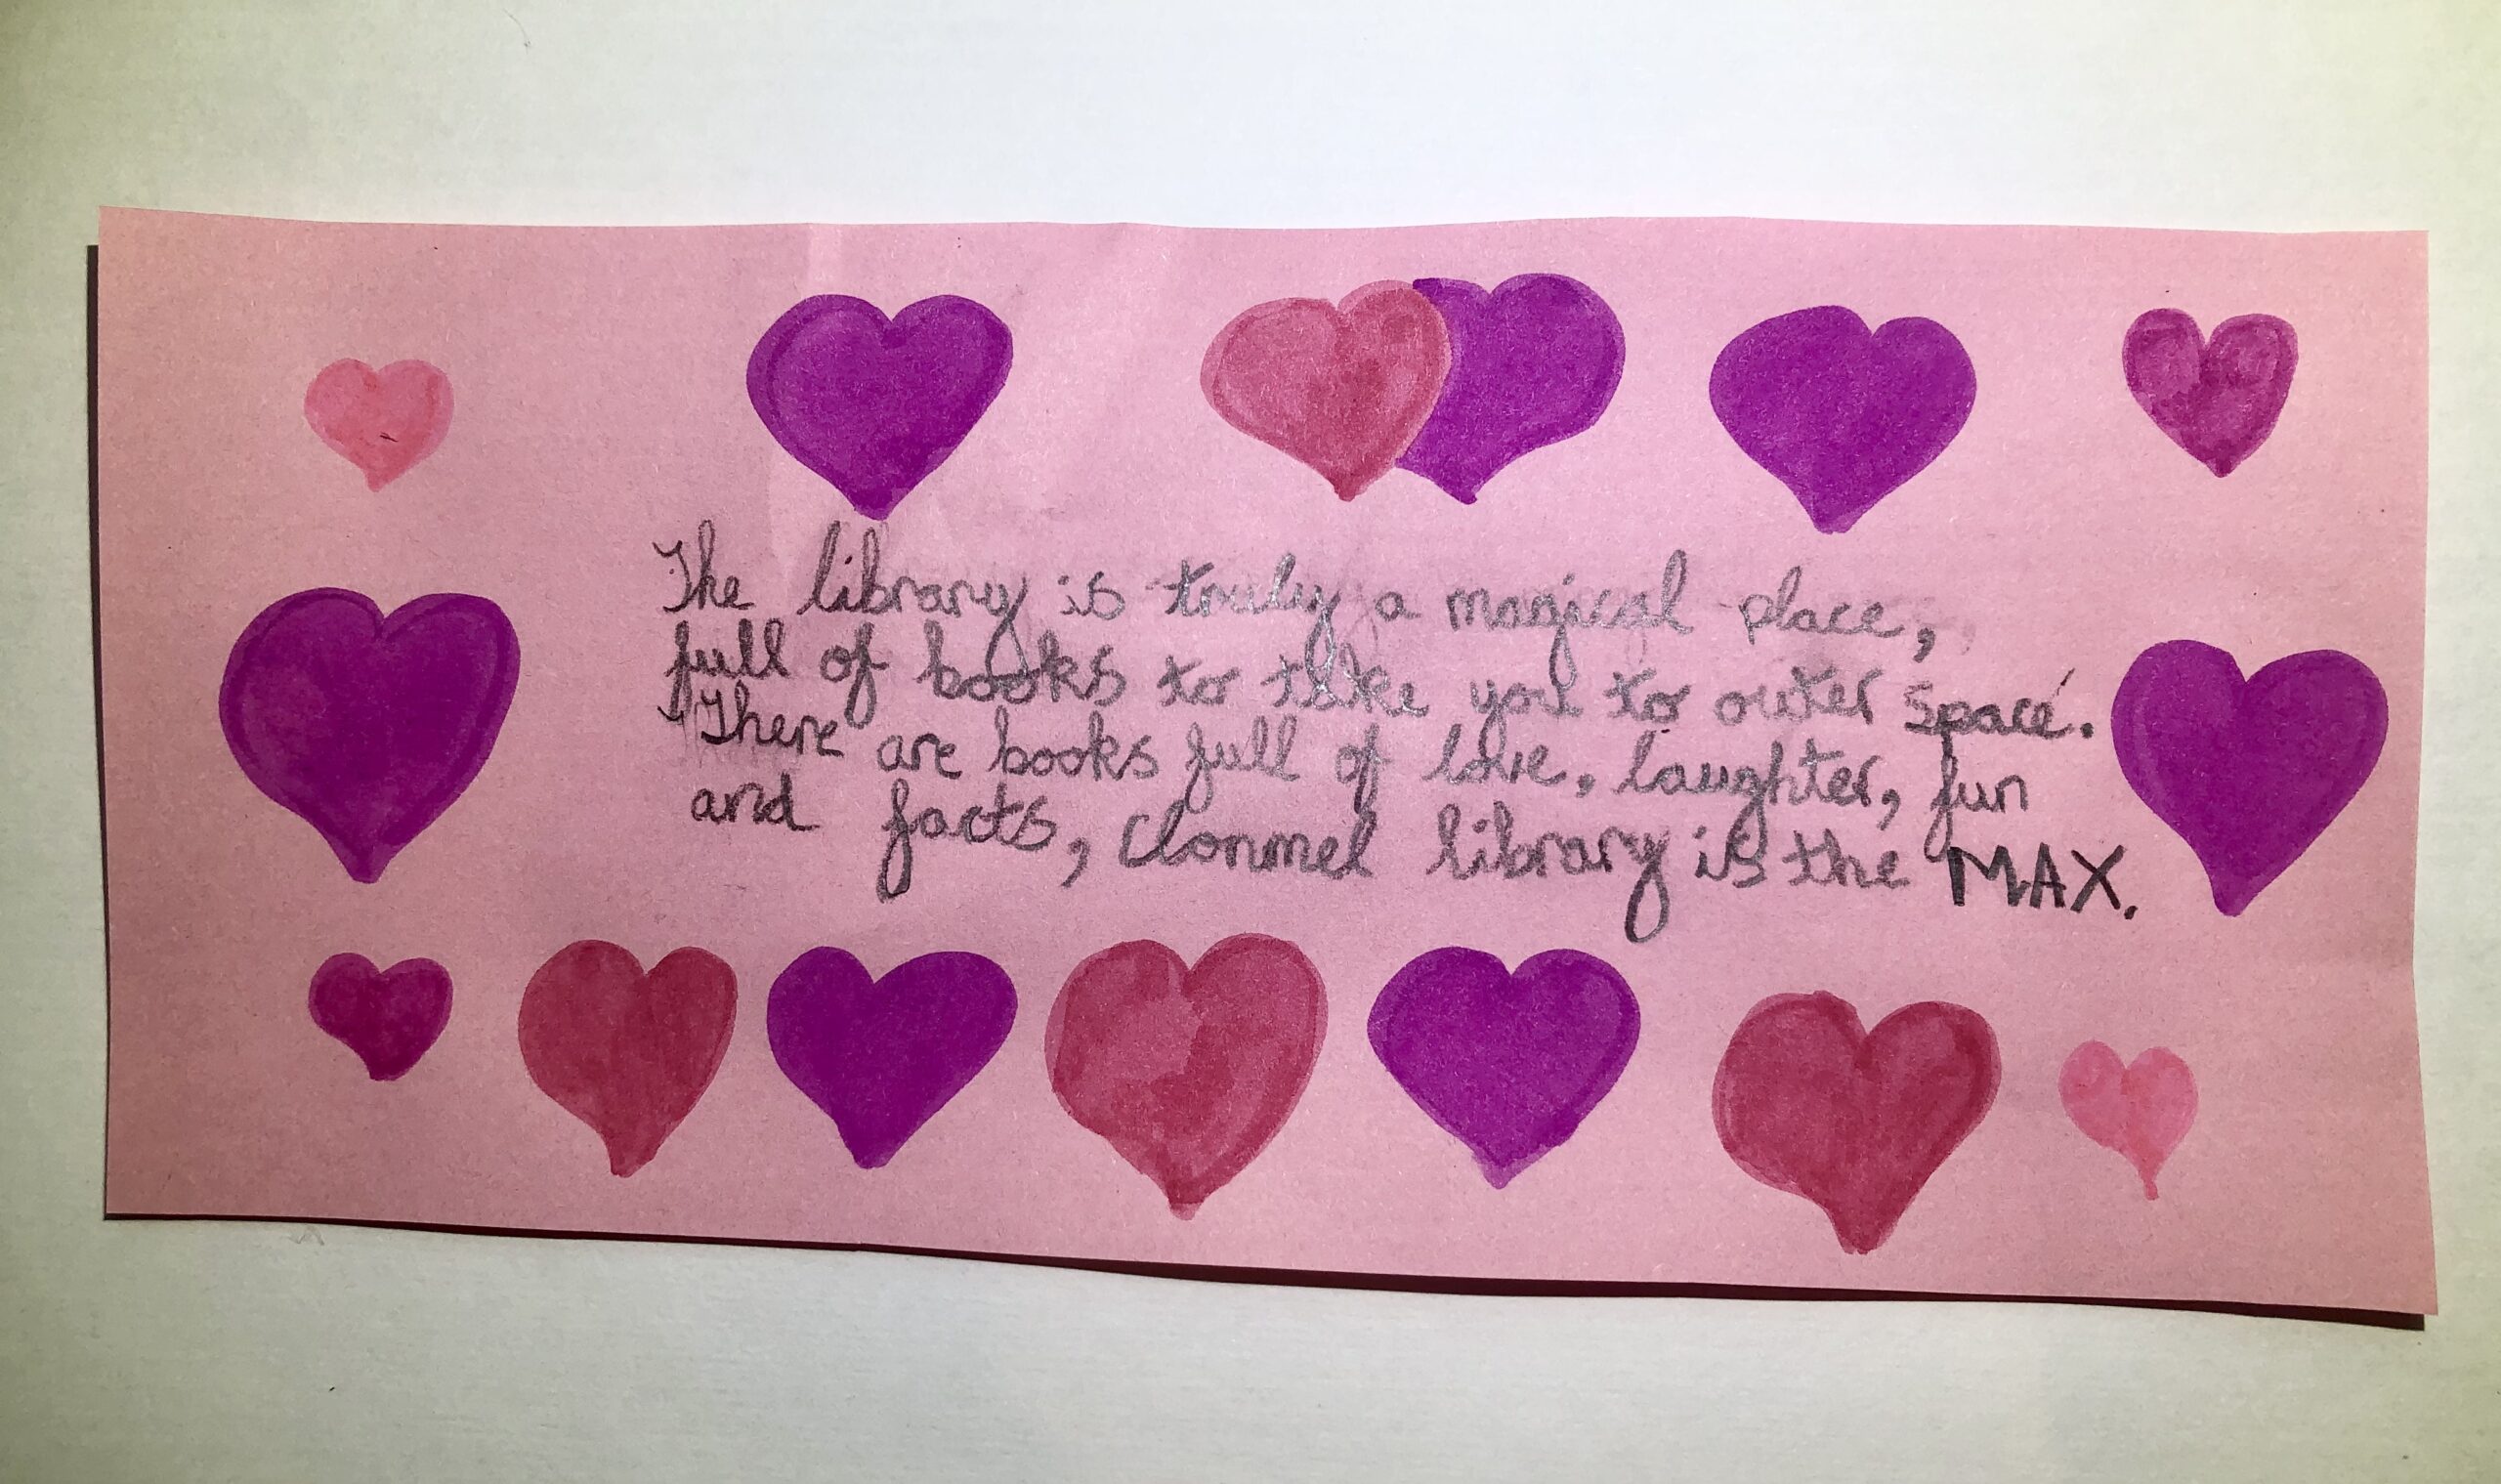 The library is truly a magical place,
full of books to take you to outer space.
There are books full of love, laughter, fun
and facts, Clonmel library is the MAX.